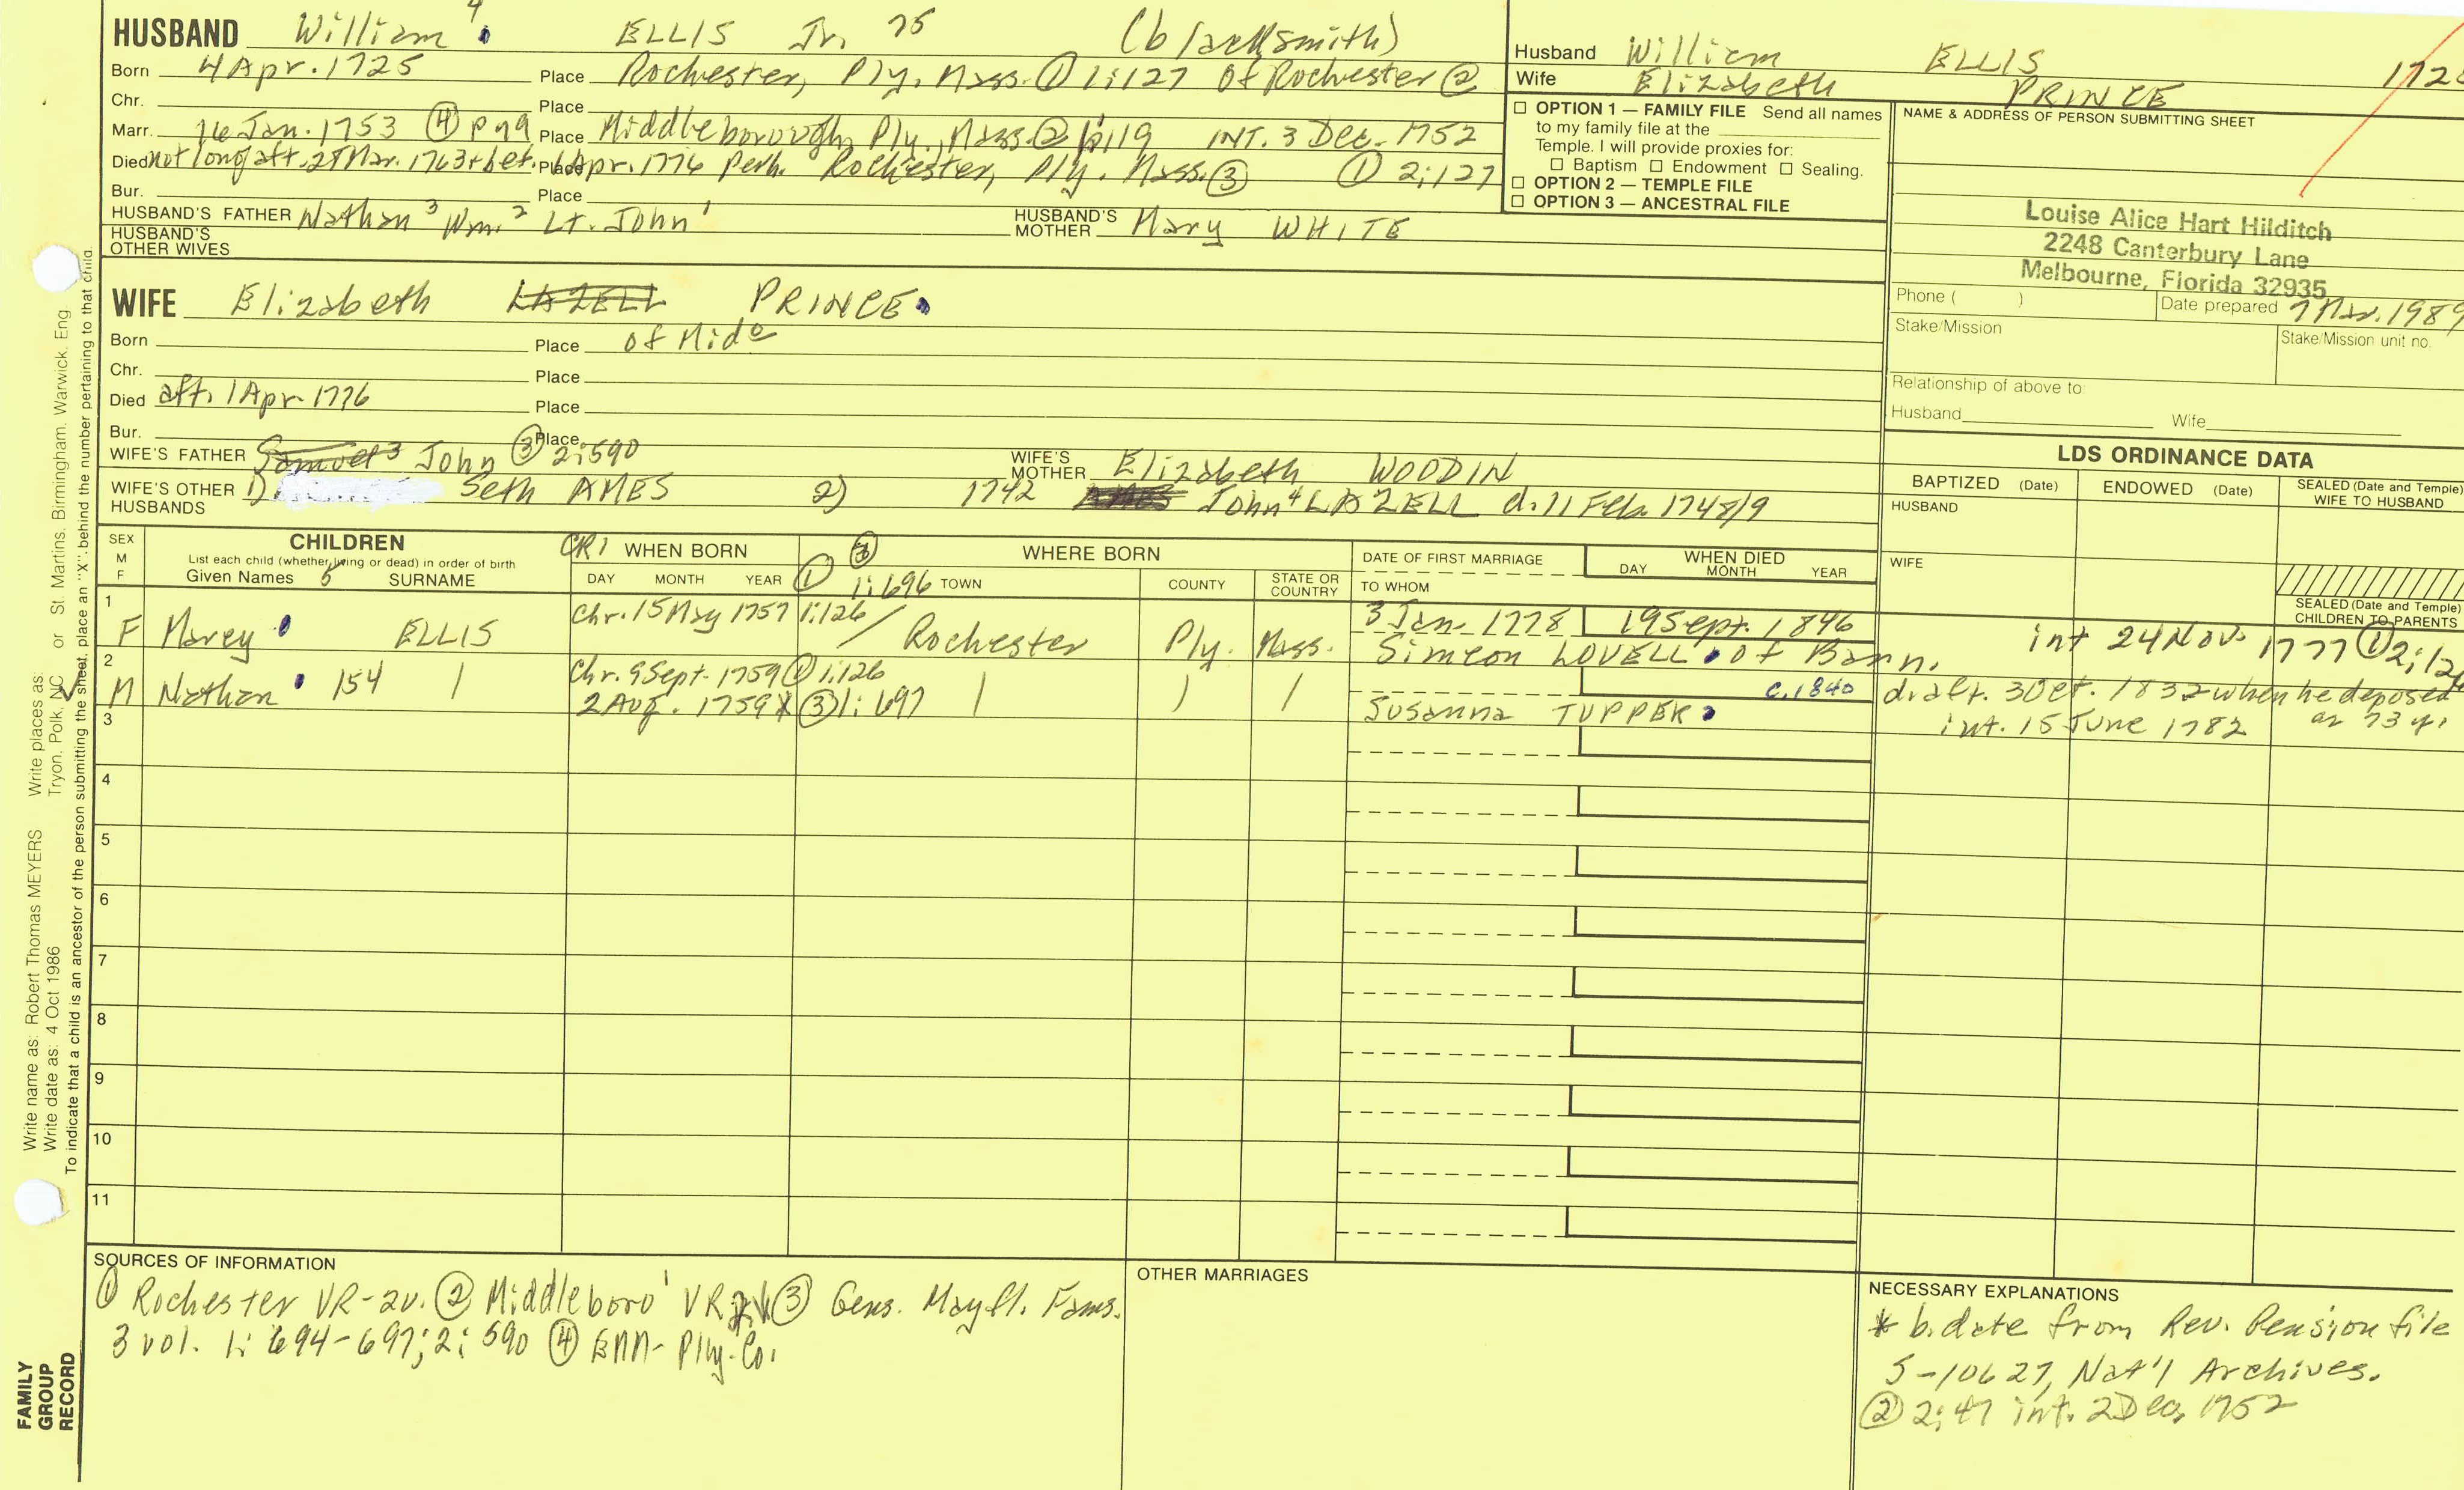 HUSBAND William 4 ELLIS Jr. 75 (blacksmith)
Born 4 Apr. 1725 Place Rochester, Ply. Mass. ① 1:127 of Rochester ②
Chr. Place
Marr. 16 Jan. 1753 ④ p 79 Place Middleborough, Ply., Mass. ② 119 INT. 3 Dec. 1752
Died not long aft. 25 Mar. 1763 + bef. 1 Apr. 1776 Place perh. Rochester, Ply. Mass. ③ ① 2:127
Bur. Place
HUSBAND'S FATHER Nathan 3 Wm. 2 Lt. John 1 HUSBAND'S MOTHER Mary WHITE
HUSBAND'S OTHER WIVES
Husband William ELLIS
Wife Elizabeth PRINCE
☐ OPTION 1 — FAMILY FILE Send all names
to my family file at the
Temple. I will provide proxies for:
☐ Baptism ☐ Endowment ☐ Sealing.
☐ OPTION 2 — TEMPLE FILE
☐ OPTION 3 — ANCESTRAL FILE
NAME & ADDRESS OF PERSON SUBMITTING SHEET
Louise Alice Hart Hilditch
2248 Canterbury Lane
Melbourne, Florida 32935
Phone ( ) Date prepared 7 Mar. 1989
Stake/Mission Stake/Mission unit no.
Relationship of above to:
Husband Wife
WIFE Elizabeth LAZELL PRINCE
Born Place of Mido
Chr. Place
Died aft. 1 Apr. 1776 Place
Bur. Place
WIFE'S FATHER Samuel 3 John ③ 2:590 WIFE'S MOTHER Elizabeth WOODIN
WIFE'S OTHER HUSBANDS 1) Seth AMES 2) 1742 AMES John 4 LAZELL d. 11 Feb. 1748/9
LDS ORDINANCE DATA
BAPTIZED (Date) ENDOWED (Date) SEALED (Date and Temple) WIFE TO HUSBAND
HUSBAND
WIFE
SEALED (Date and Temple) CHILDREN TO PARENTS
SEX M F CHILDREN CR1 WHEN BORN ③ WHERE BORN DATE OF FIRST MARRIAGE WHEN DIED
List each child (whether living or dead) in order of birth
Given Names 5 SURNAME DAY MONTH YEAR ① 1:696 TOWN COUNTY STATE OR COUNTRY TO WHOM DAY MONTH YEAR
1 Chr. 15 May 1757 1:126 3 Jan. 1778 19 Sept. 1846
F Marcy ELLIS Rochester Ply. Mass. Simeon LOVELL of Barn. int 24 Nov. 1777 ① 2:12
2 Chr. 9 Sept. 1759 ① 1:126 c. 1840 d. aft. 3 Oct. 1832 when he deposed
M Nathan 154 2 Aug. 1759 * ③ 1:697 Susanna TUPPER int. 15 June 1782 as 73 y.
3
4
5
6
7
8
9
10
11
SOURCES OF INFORMATION
① Rochester VR-2v. ② Middleboro' VR ③ Gens. Mayfl. Fams.
3 vol. 1: 694-697; 2: 590 ④ EMM- Ply. Co.
OTHER MARRIAGES
NECESSARY EXPLANATIONS
* b. date from Rev. Pension file
S-10627, Nat'l Archives.
② 2:47 int. 2 Dec. 1752
Write name as: Robert Thomas MEYERS Write places as: Tryon, Polk, NC or St. Martins, Birmingham, Warwick, Eng.
Write date as: 4 Oct 1986
To indicate that a child is an ancestor of the person submitting the sheet, place an "X" behind the number pertaining to that child.
FAMILY
GROUP
RECORD